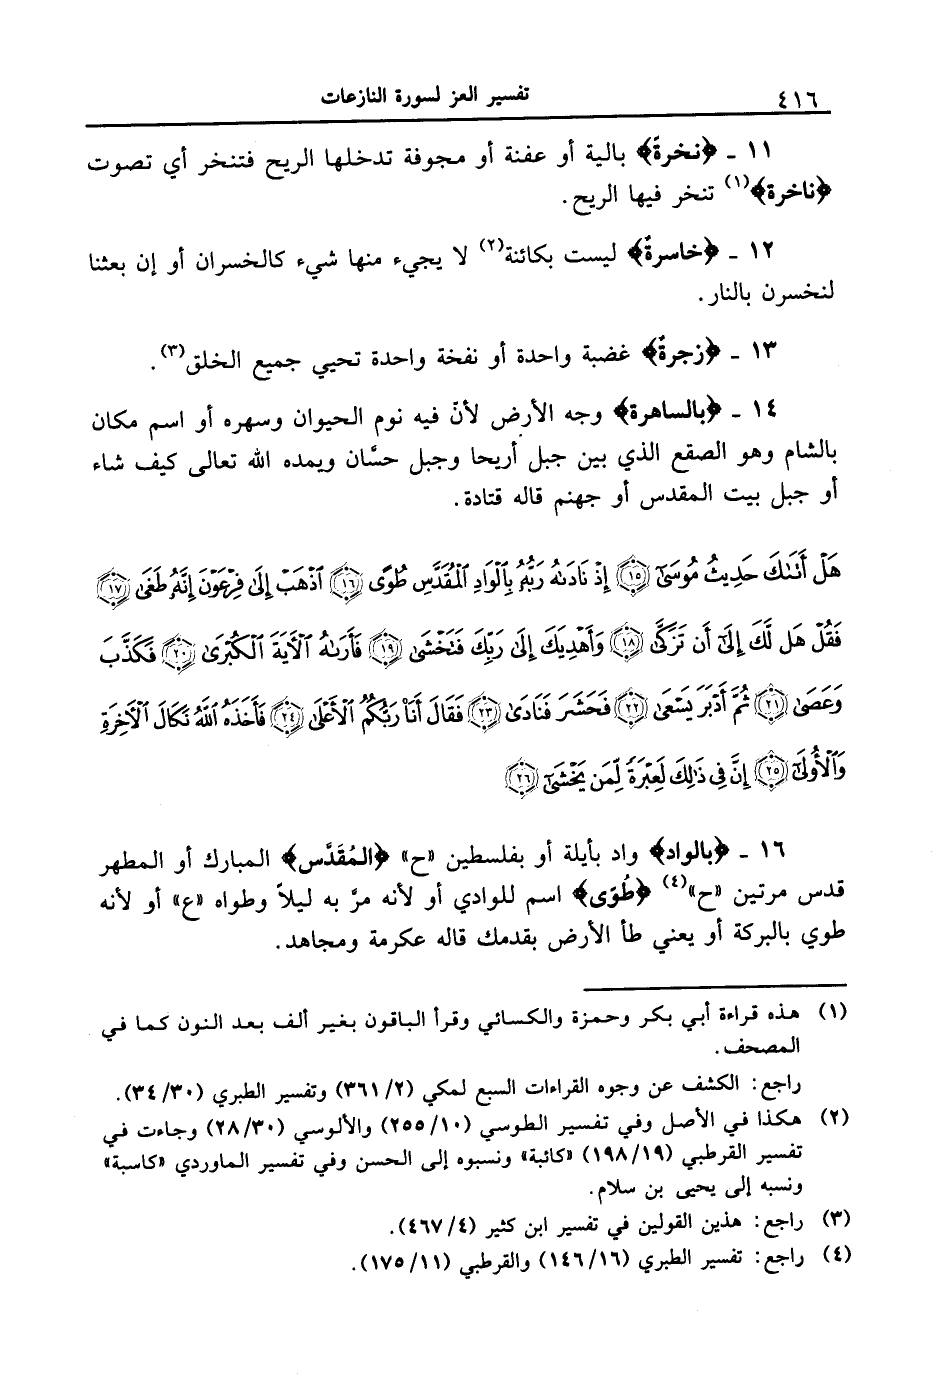 ٤١٦
تفسير العز لسورة النازعات
١١ ـ ﴿نخرةً﴾ بالية أو عفنة أو مجوفة تدخلها الريح فتنخر أي تصوت
﴿ناخرة﴾(١) تنخر فيها الريح.
١٢ ـ ﴿خاسرةٌ﴾ ليست بكائنة(٢) لا يجيء منها شيء كالخسران أو إن بعثنا
لنخسرن بالنار.
١٣ ـ ﴿زجرةٌ﴾ غضبة واحدة أو نفخة واحدة تحيي جميع الخلق(٣).
١٤ ـ ﴿بالساهرة﴾ وجه الأرض لأنّ فيه نوم الحيوان وسهره أو اسم مكان
بالشام وهو الصقع الذي بين جبل أريحا وجبل حسَّان ويمده الله تعالى كيف شاء
أو جبل بيت المقدس أو جهنم قاله قتادة.
هَلْ أَتَىٰكَ حَدِيثُ مُوسَىٰٓ ١٥ إِذْ نَادَىٰهُ رَبُّهُۥ بِٱلْوَادِ ٱلْمُقَدَّسِ طُوًى ١٦ ٱذْهَبْ إِلَىٰ فِرْعَوْنَ إِنَّهُۥ طَغَىٰ ١٧
فَقُلْ هَل لَّكَ إِلَىٰٓ أَن تَزَكَّىٰ ١٨ وَأَهْدِيَكَ إِلَىٰ رَبِّكَ فَتَخْشَىٰ ١٩ فَأَرَىٰهُ ٱلْـَٔايَةَ ٱلْكُبْرَىٰ ٢٠ فَكَذَّبَ
وَعَصَىٰ ٢١ ثُمَّ أَدْبَرَ يَسْعَىٰ ٢٢ فَحَشَرَ فَنَادَىٰ ٢٣ فَقَالَ أَنَا۠ رَبُّكُمُ ٱلْأَعْلَىٰ ٢٤ فَأَخَذَهُ ٱللَّهُ نَكَالَ ٱلْـَٔاخِرَةِ
وَٱلْأُولَىٰٓ ٢٥ إِنَّ فِى ذَٰلِكَ لَعِبْرَةً لِّمَن يَخْشَىٰٓ ٢٦
١٦ ـ ﴿بالواد﴾ واد بأيلة أو بفلسطين «ح» ﴿المُقَدَّس﴾ المبارك أو المطهر
قدس مرتين «ح»(٤) ﴿طُوًى﴾ اسم للوادي أو لأنه مرَّ به ليلاً وطواه «ع» أو لأنه
طوي بالبركة أو يعني طأ الأرض بقدمك قاله عكرمة ومجاهد.
(١) هذه قراءة أبي بكر وحمزة والكسائي وقرأ الباقون بغير ألف بعد النون كما في
المصحف.
راجع: الكشف عن وجوه القراءات السبع لمكي (٣٦١/٢) وتفسير الطبري (٣٤/٣٠).
(٢) هكذا في الأصل وفي تفسير الطوسي (٢٥٥/١٠) والألوسي (٢٨/٣٠) وجاءت في
تفسير القرطبي (١٩٨/١٩) «كائبة» ونسبوه إلى الحسن وفي تفسير الماوردي «كاسبة»
ونسبه إلى يحيى بن سلام.
(٣) راجع: هذين القولين في تفسير ابن كثير (٤٦٧/٤).
(٤) راجع: تفسير الطبري (١٤٦/١٦) والقرطبي (١٧٥/١١).